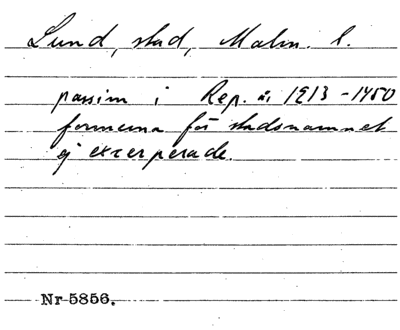 Lund, stad, Malm. l.
passim i Rep. nr 1213-1450
formerna för stadsnamnet
ej excerperade.
Nr 5856.